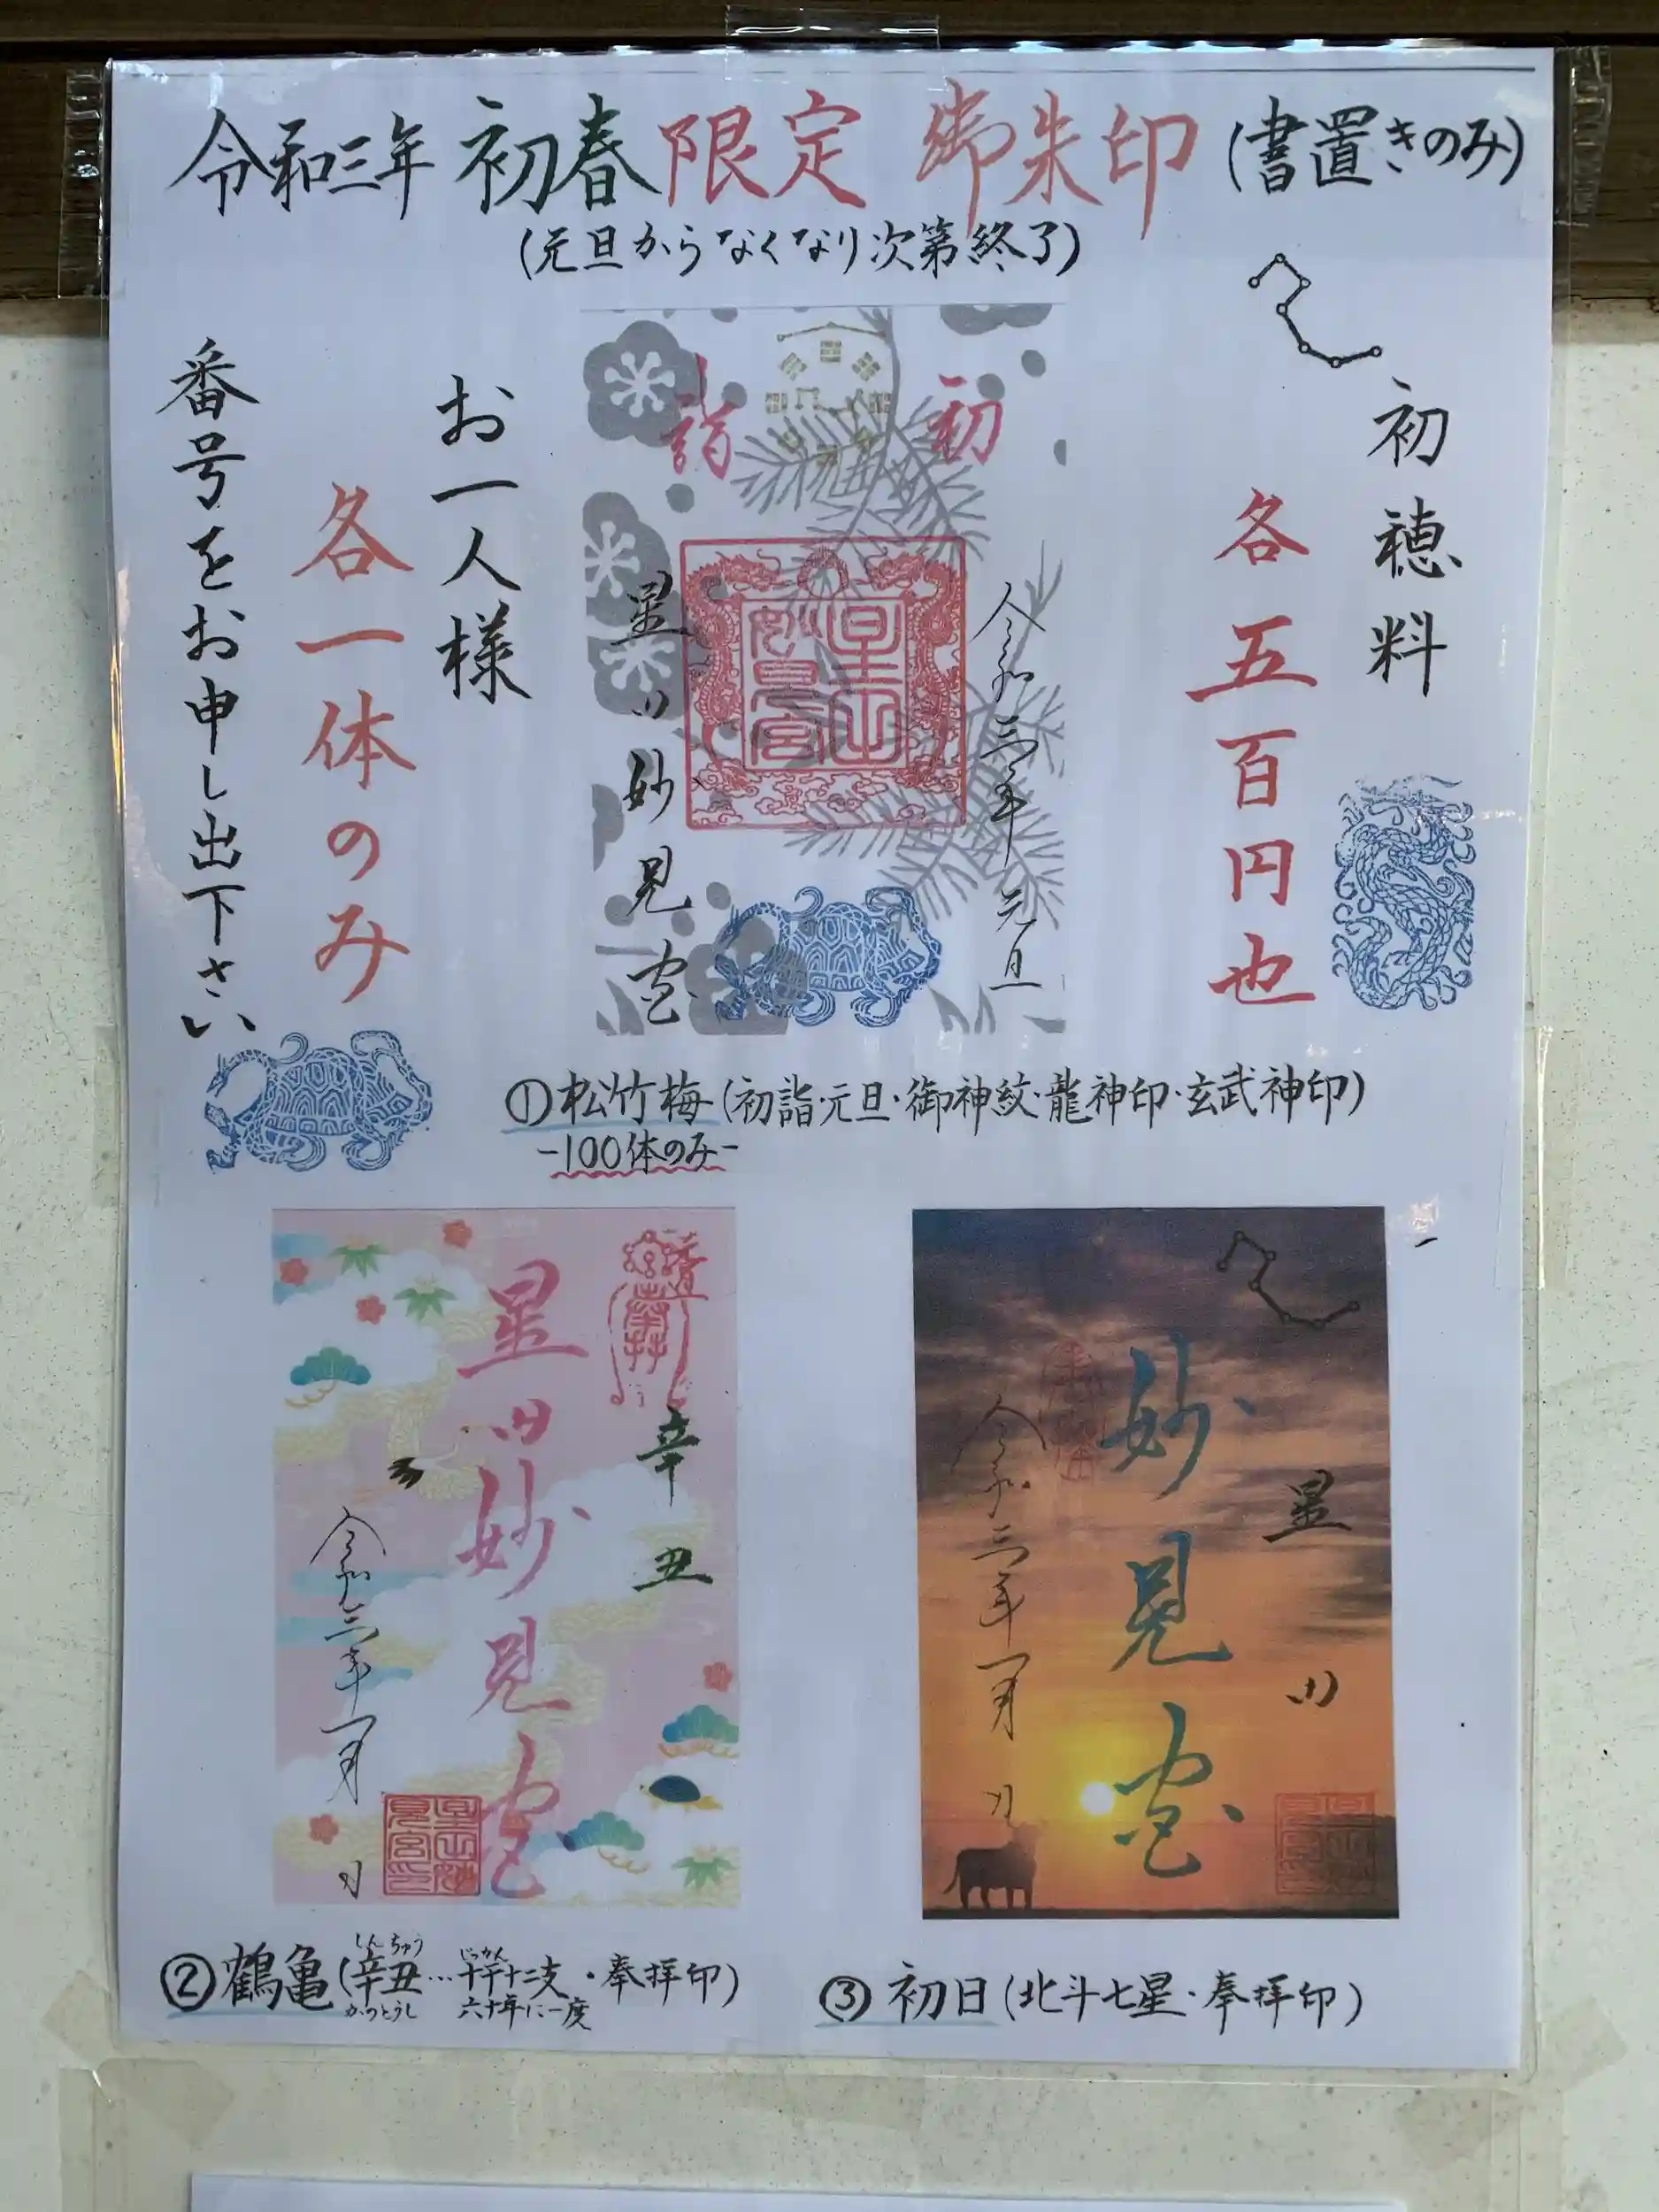 令和三年 初春限定 御朱印 (書置きのみ)
(元旦からなくなり次第終了)
初穂料
各五百円也
初
詣
令和三年 元旦
星山妙見宮
星田妙見宮
お一人様
各一体のみ
番号をお申し出下さい
①松竹梅(初詣・元旦・御神紋・龍神印・玄武神印)
-100体のみ-
奉拝
辛丑
星田妙見宮
令和三年一月 日
星田
妙見宮
令和三年一月 日
②鶴亀(辛丑…十干十二支・奉拝印)
しんちゅう
じっかん
かのとうし
六十年に一度
③初日(北斗七星・奉拝印)